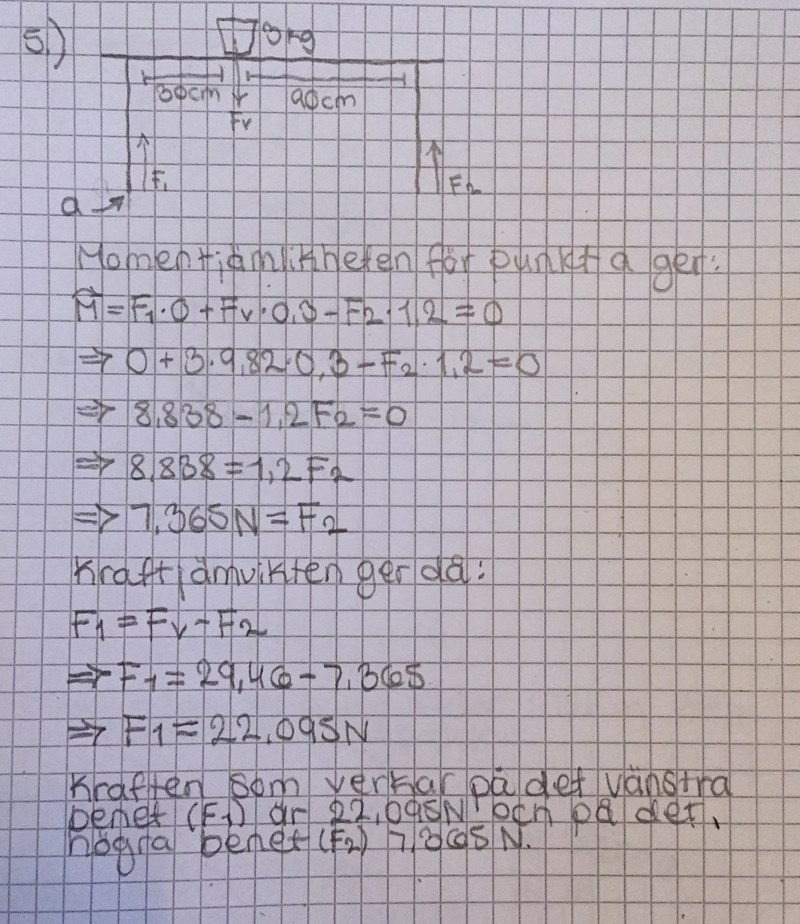 5.)
3kg
30cm
90cm
Fv
F₁
F₂
a →
Momentjämlikheten för punkt a ger:
M⃗ = F₁·0 + Fv·0,3 - F₂·1,2 = 0
⇒ 0 + 3·9,82·0,3 - F₂·1,2 = 0
⇒ 8,838 - 1,2F₂ = 0
⇒ 8,838 = 1,2F₂
⇒ 7,365N = F₂
Kraftjämvikten ger då:
F₁ = Fv - F₂
⇒ F₁ = 29,46 - 7,365
⇒ F₁ = 22,095N
Kraften som verkar på det vänstra
benet (F₁) är 22,095N och på det
högra benet (F₂) 7,365N.